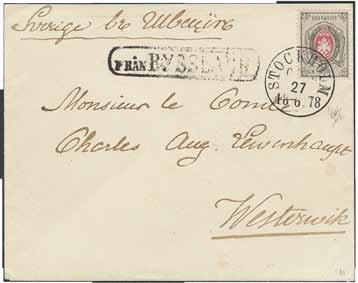 Sverige
FRÅN RYSSLAND
STOCKHOLM
27
16 6. 78
Monsieur le Comte
Charles Aug. Lewenhaupt
Westerwik